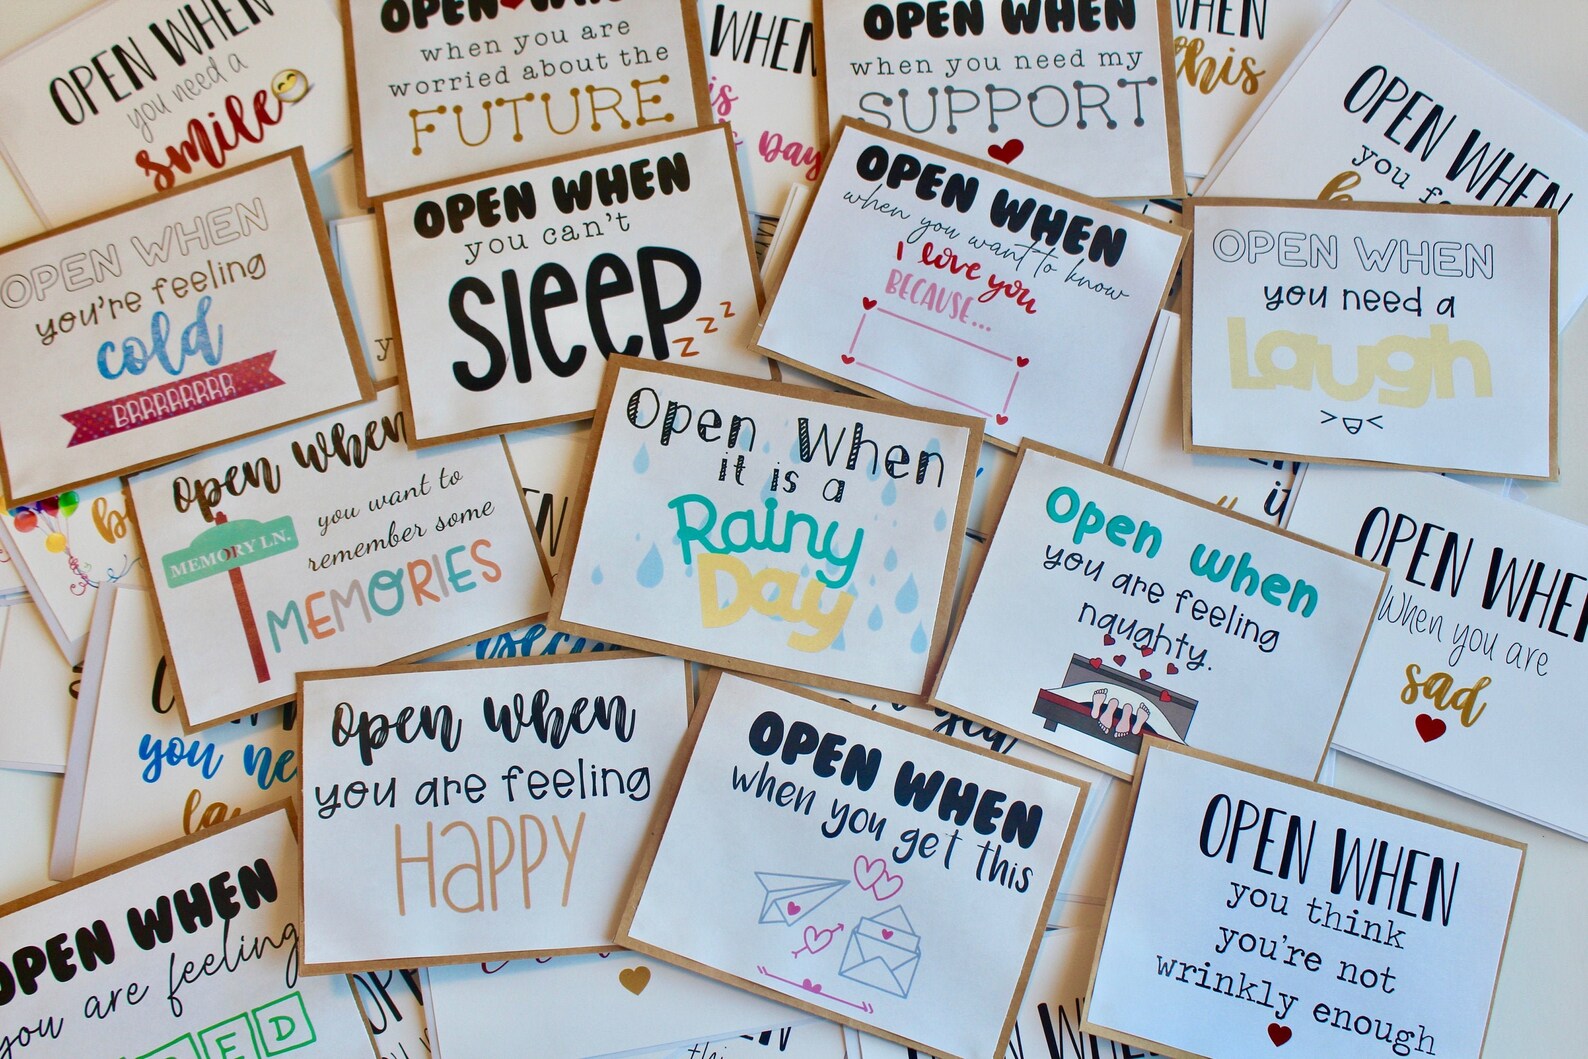 OPEN WHEN
you need a
smile
OPEN WHEN
when you are
worried about the
FUTURE
WHEN
Day
OPEN WHEN
when you need my
SUPPORT
WHEN
this
OPEN WHEN
you
OPEN WHEN
you're feeling
cold
BRRRRRRRR
OPEN WHEN
you can't
SLEEP
zzz
OPEN WHEN
when you want to know
I love you
BECAUSE...
OPEN WHEN
you need a
Laugh
open when
you want to
remember some
MEMORIES
MEMORY LN.
Open When
it is a
Rainy
Day
Open when
you are feeling
naughty.
OPEN WHEN
When you are
sad
you ne
la
open when
you are feeling
HAPPY
OPEN WHEN
when you get this
OPEN WHEN
you think
you're not
wrinkly enough
OPEN WHEN
you are feeling
RED
OPEN
WHEN